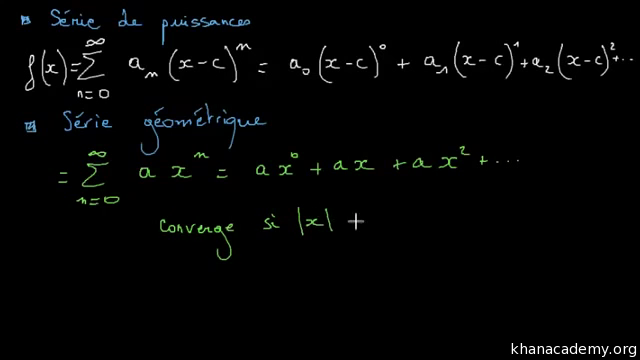 Série de puissances
f(x) = ∑_{n=0}^{∞} a_n (x-c)^n = a_0 (x-c)^0 + a_1 (x-c)^1 + a_2 (x-c)^2 + ...
Série géométrique
= ∑_{n=0}^{∞} a x^n = a x^0 + a x + a x^2 + ...
converge si |x|
khanacademy.org